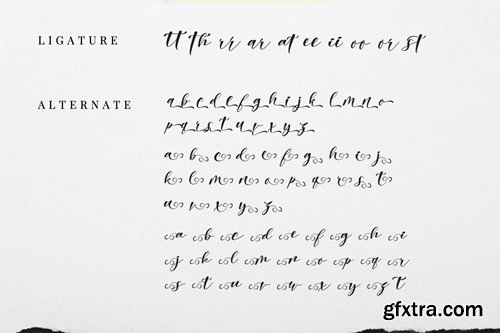 LIGATURE tt th rr ar at ee ii oo or st
ALTERNATE a b c d e f g h i j k l m n o
p q r s t u v x y z
a b c d e f g h i j
k l m n o p q r s t
u v x y z
a b c d e f g h i
j k l m n o p q r
s t u v w x y z t
gfxtra.com